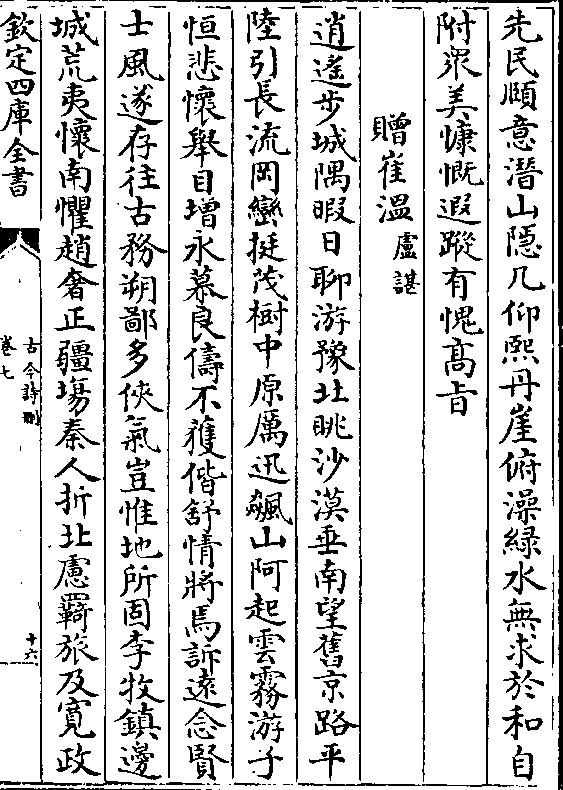 先民頤意潛山隱几仰熙丹崖俯澡緑水無求於和自
附衆美慷慨遐蹤有愧髙㫖
贈崔溫盧諶
逍遙步城隅暇日聊游豫北眺沙漠垂南望舊京路平
陸引長流岡巒挺茂樹中原厲迅飈山阿起雲霧游子
恒悲懷舉目增永慕良儔不獲偕舒情將焉訴逺念賢
士風遂存往古務朔鄙多俠氣豈惟地所固李牧鎮邊
城荒夷懷南懼趙奢正疆埸秦人折北慮羈旅及寛政
欽定四庫全書
古今詩刪
卷七
十六